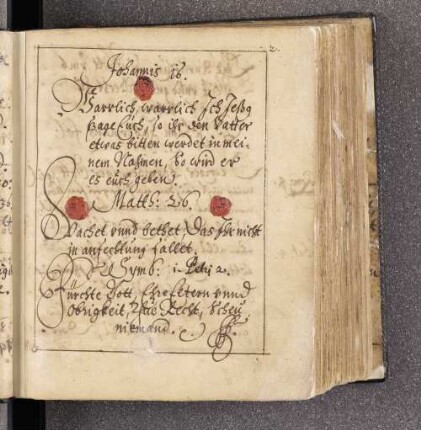 Johannis 16.
Warrlich, warrlich Ich
sage Euch, so ihr den Vatter
etwas bitten werdet in mei-
nem Nahmen, So wird er
es euch geben.
Matth: 26.
Wachet vnnd bethet, Das Ihr nicht
in anfechtung fallet.
Symb: 1 Petrj 2.
Fürchte Gott, Ehre vnnd
Obrigkeit, Thue Recht, Scheu
niemand.